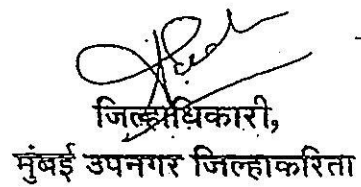 जिल्हाधिकारी,
मुंबई उपनगर जिल्हाकरिता